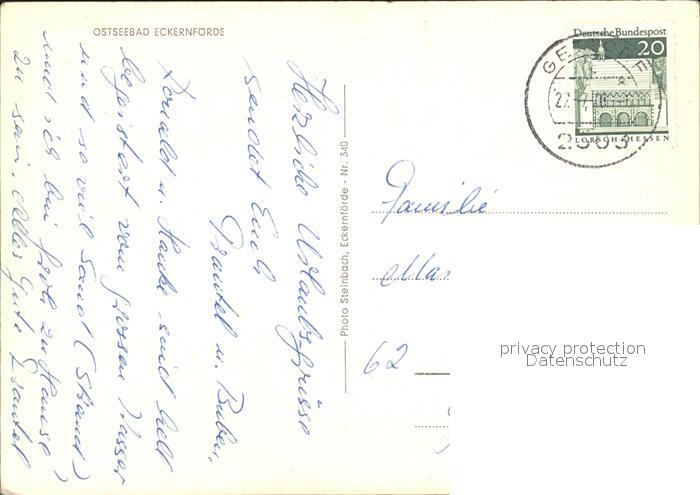 OSTSEEBAD ECKERNFÖRDE
Herzliche Urlaubsgrüsse
sendet Euch
Trautel u. Buben,
Donald u. Hauke sind hell
begeistert vom grossen Wasser
und so viel Sand (Strand)
und ich bin froh zu Hause
zu sein. Alles Gute Trautel
Photo Steinbach, Eckernförde - Nr. 340
Deutsche Bundespost
20
LORSCH · HESSEN
Familie
62
privacy protection
Datenschutz